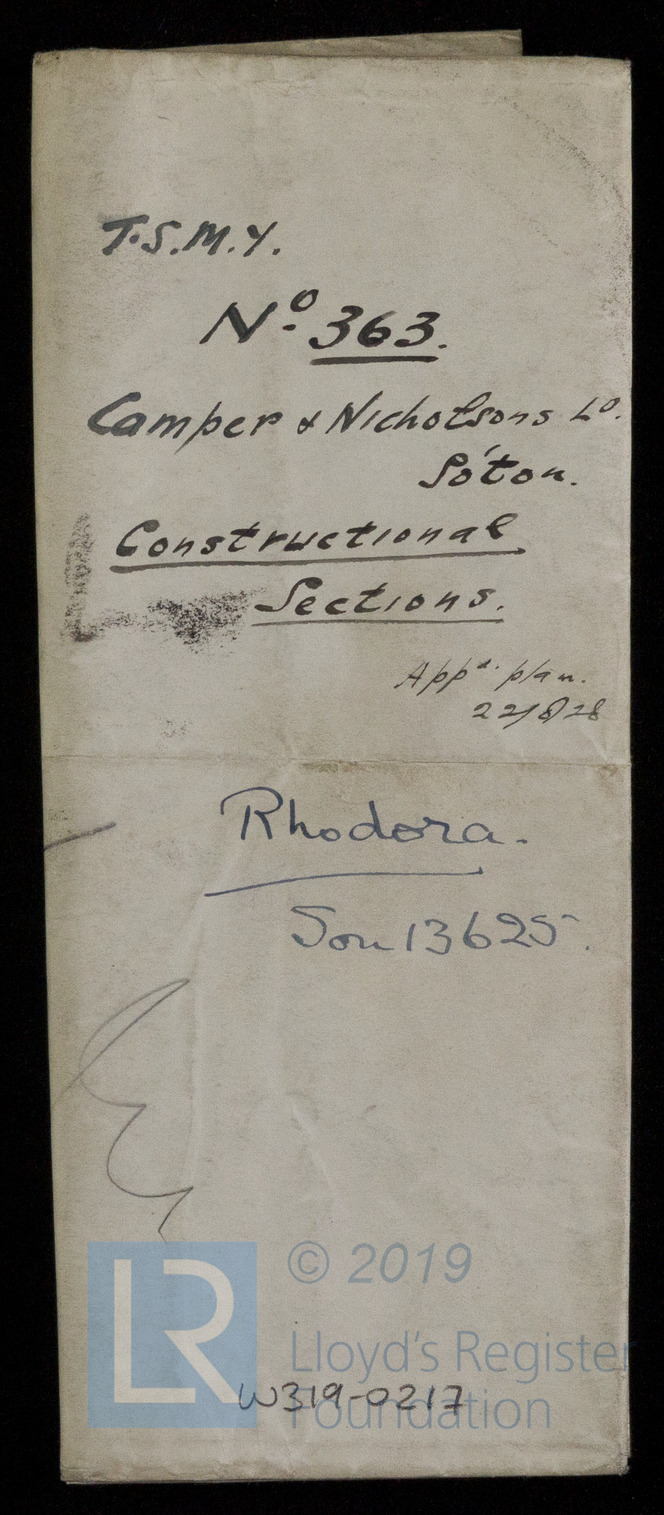 T.S.M.Y.
Nº 363.
Camper & Nicholsons Lᴰ.
So'ton.
Constructional
Sections.
Appᵈ. plan.
22/8/28
Rhodora.
Sou 13625.
LR
© 2019
Lloyd's Register
Foundation
W319-0217